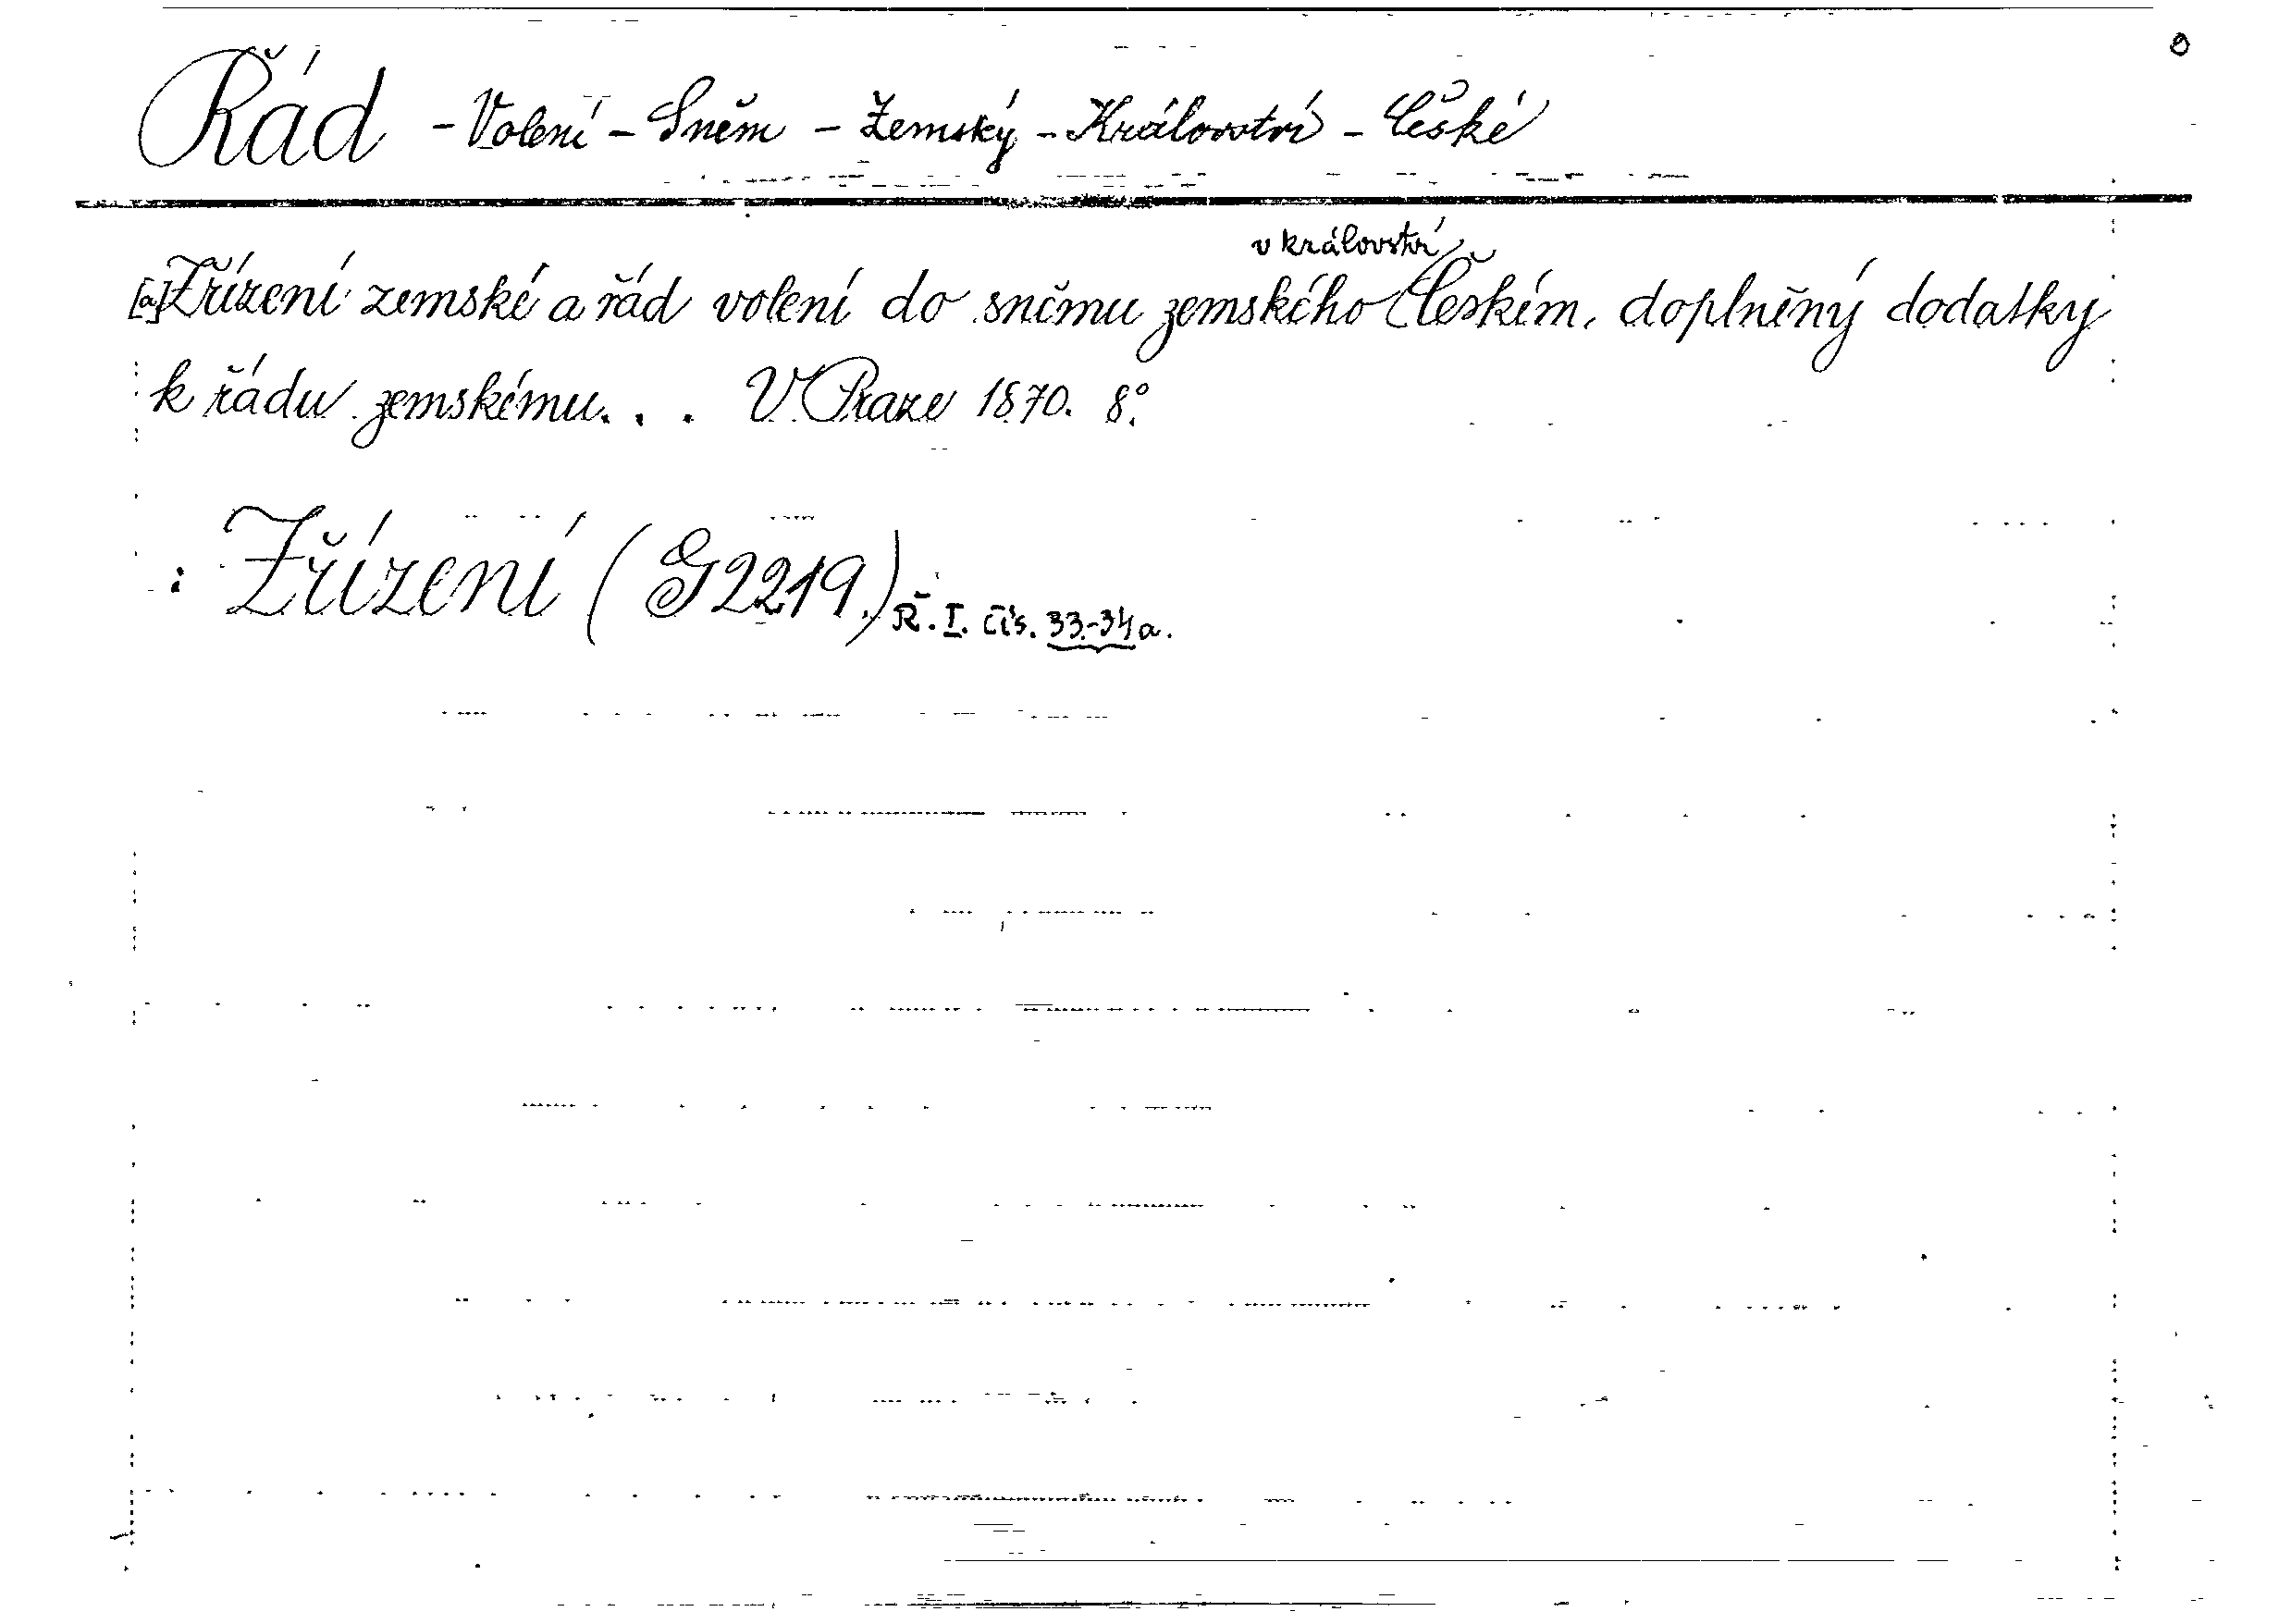 Řád - Volení - Sněm - Zemský - Království - České
[a] Zřízení zemské a řád volení do sněmu zemského v království Českém, doplněný dodatky
k řádu zemskému... V Praze 1870. 8°.
: Zřízení (G 2219.) Ř. I. čís. 33.-34a.